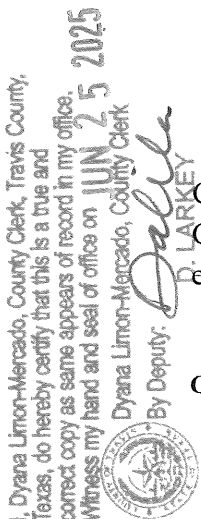 I, Dyana Limon-Mercado, County Clerk, Travis County,
Texas, do hereby certify that this is a true and
correct copy as same appears of record in my office.
Witness my hand and seal of office on JUN 25 2025
Dyana Limon-Mercado, County Clerk
By Deputy:
D. LARKEY